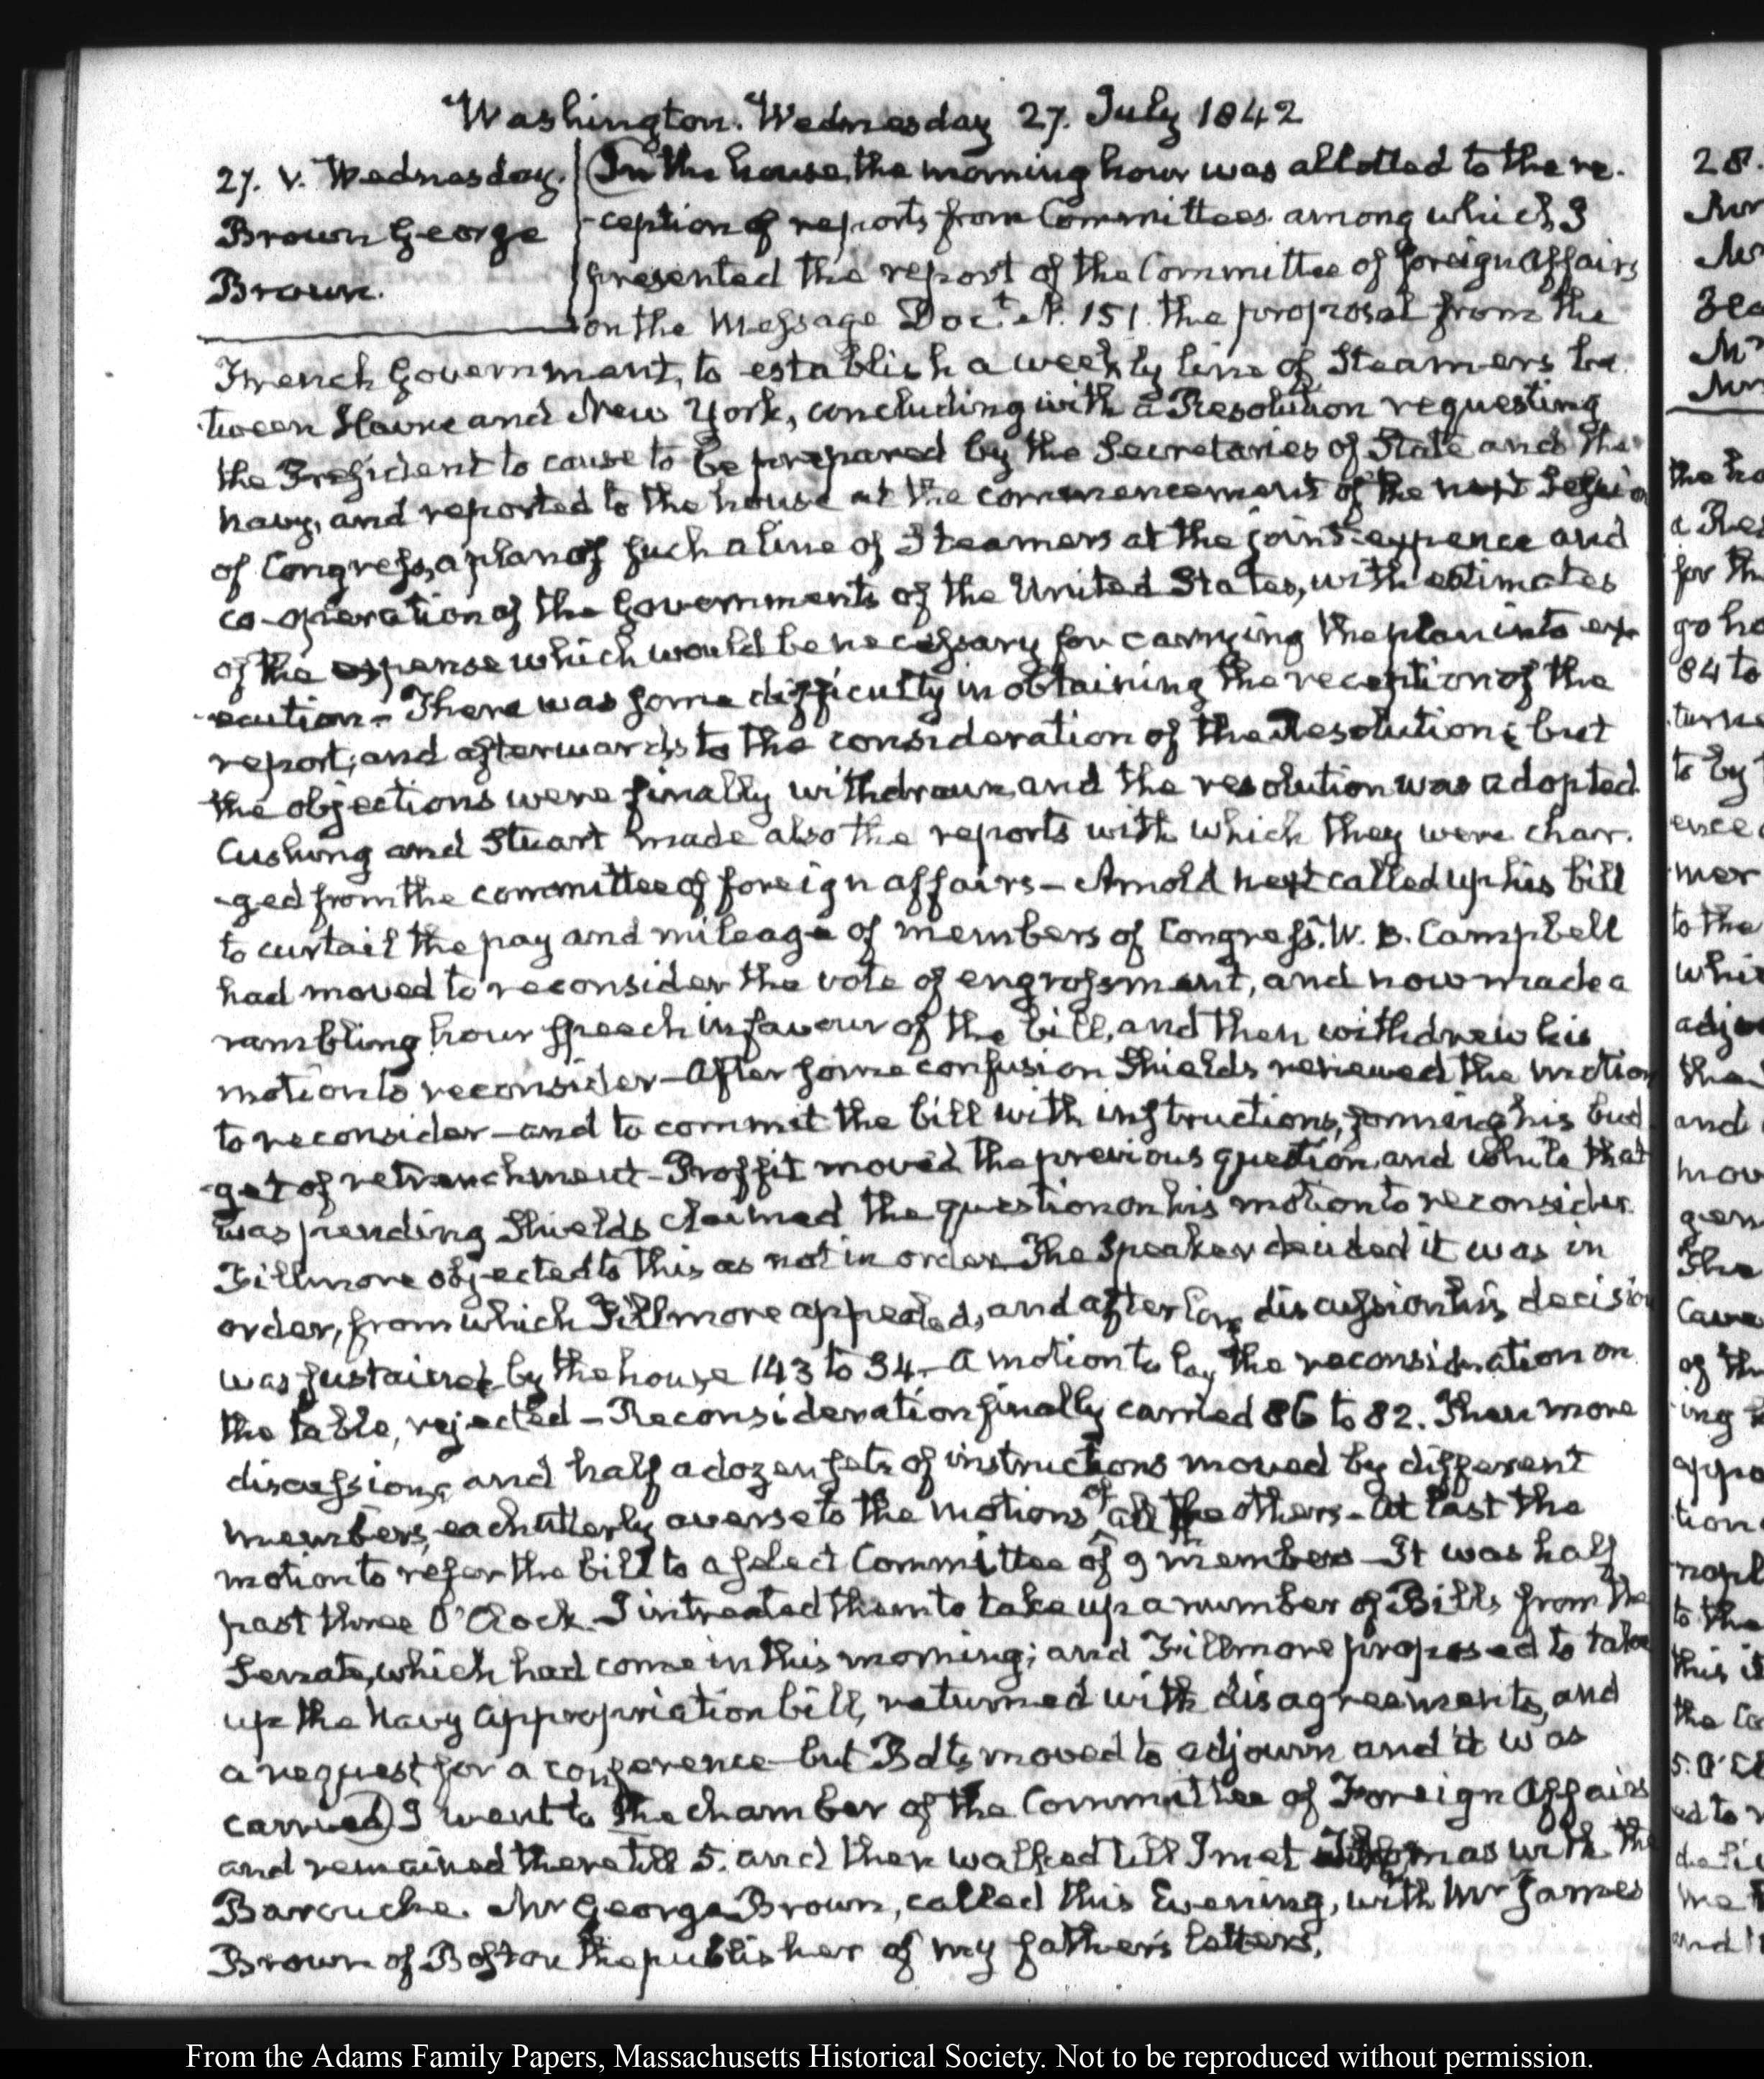 Washington. Wednesday 27. July 1842
27. V. Wednesday.
Brown George
Brown.
In the house, the morning hour was allotted to the re-
-ception of reports from Committees among which I
presented the report of the Committee of foreign Affairs
on the Message Doct. N. 151. the proposal from the
French Government, to establish a weekly line of Steamers be
tween Havre and New York, concluding with a Resolution requesting
the President to cause to be prepared by the Secretaries of State and the
Navy, and reported to the house at the commencement of the next Session
of Congress, a plan of such a line of Steamers at the joint expence and
co-operation of the Governments of the United States, with estimates
of the expense which would be necessary for carrying the plan into ex-
-ecution- There was some difficulty in obtaining the reception of the
report; and afterwards to the consideration of the Resolution; but
the objections were finally withdrawn and the resolution was adopted.
Cushing and Stuart made also the reports with which they were char-
-ged from the committee of foreign affairs- Arnold next called up his bill
to curtail the pay and mileage of members of Congress. W. B. Campbell
had moved to reconsider the vote of engrossment, and now made a
rambling hour speech in favour of the bill, and then withdrew his
motion to reconsider- After some confusion Shields renewed the motion
to reconsider- and to commit the bill with instructions, forming his bud
-get of retrenchment- Proffit moved the previous question, and while that
was pending Shields claimed the question on his motion to reconsider.
Fillmore objected to this as not in order- The Speaker decided it was in
order, from which Fillmore appealed, and after long discussion his decision
was sustained by the house 143 to 34- A motion to lay the reconsideration on
the table, rejected- Reconsideration finally carried 86 to 82. Then more
discussions, and half a dozen sets of instructions moved by different
members, each utterly averse to the motions of all the others- At last the
motion to refer the bill to a select Committee of 9 members- It was half
past three O'Clock- I intreated them to take up a number of Bills from the
Senate, which had come in this morning; and Fillmore proposed to take
up the Navy appropriation bill, returned with disagreements, and
a request for a conference- but Botts moved to adjourn and it was
carried) I went to the chamber of the Committee of Foreign Affairs
and remained there till 5. and then walked till I met Thomas with the
Barouche. Mr George Brown, called this Evening, with Mr James
Brown of Boston the publisher of my father's letters.
From the Adams Family Papers, Massachusetts Historical Society. Not to be reproduced without permission.